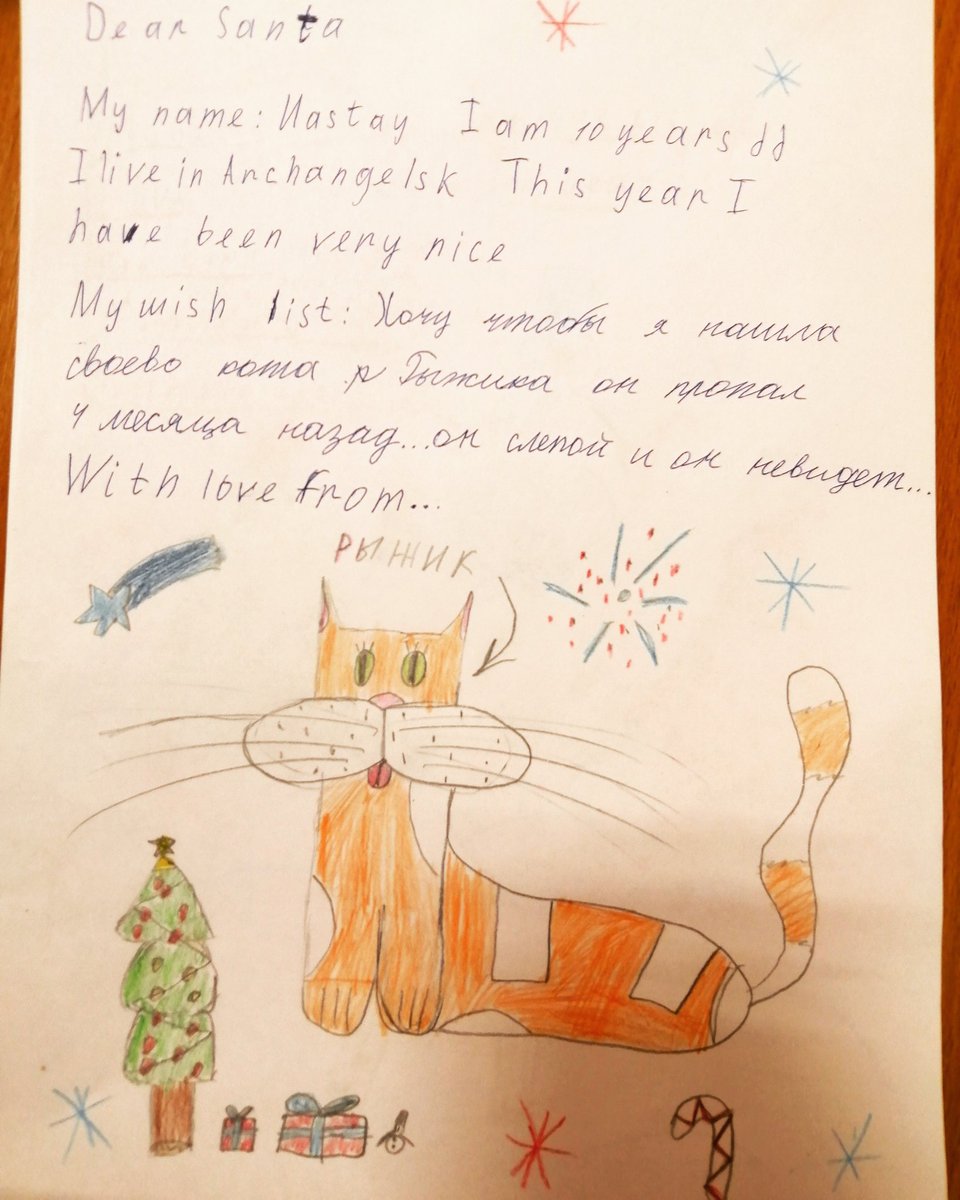 Dear Santa
My name: Nastay I am 10 years
I live in Archangelsk This year I
have been very nice
My wish list: Хочу чтобы я нашла
своево кота р Рыжика он пропал
4 месяца назад...он слепой и он невидет...
With love from...
РЫЖИК